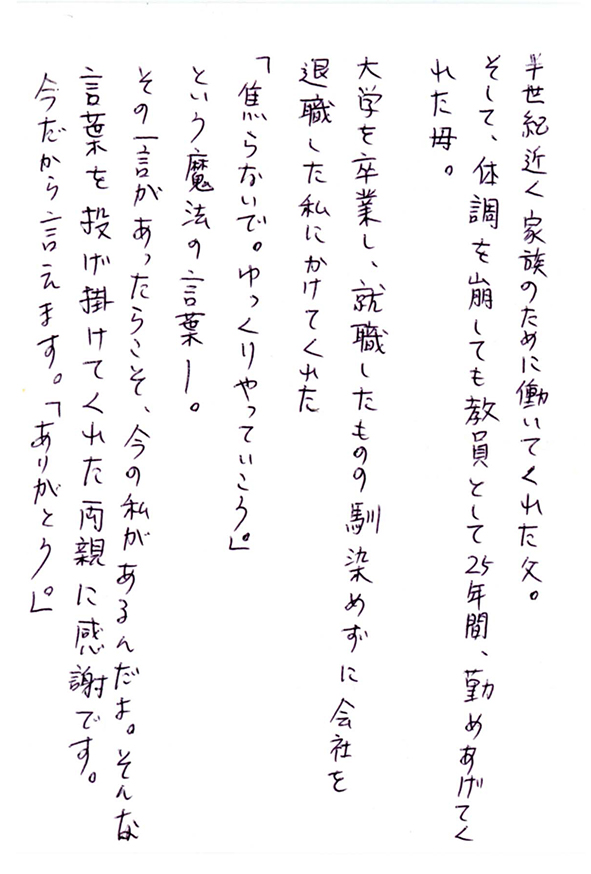 半世紀近く家族のために働いてくれた父。
そして、体調を崩しても教員として25年間、勤めあげてく
れた母。
大学を卒業し、就職したものの馴染めずに会社を
退職した私にかけてくれた
「焦らないで。ゆっくりやっていこう。」
という魔法の言葉ー。
その一言があったらこそ、今の私があるんだよ。そんな
言葉を投げ掛けてくれた両親に感謝です。
今だから言えます。「ありがとう。」